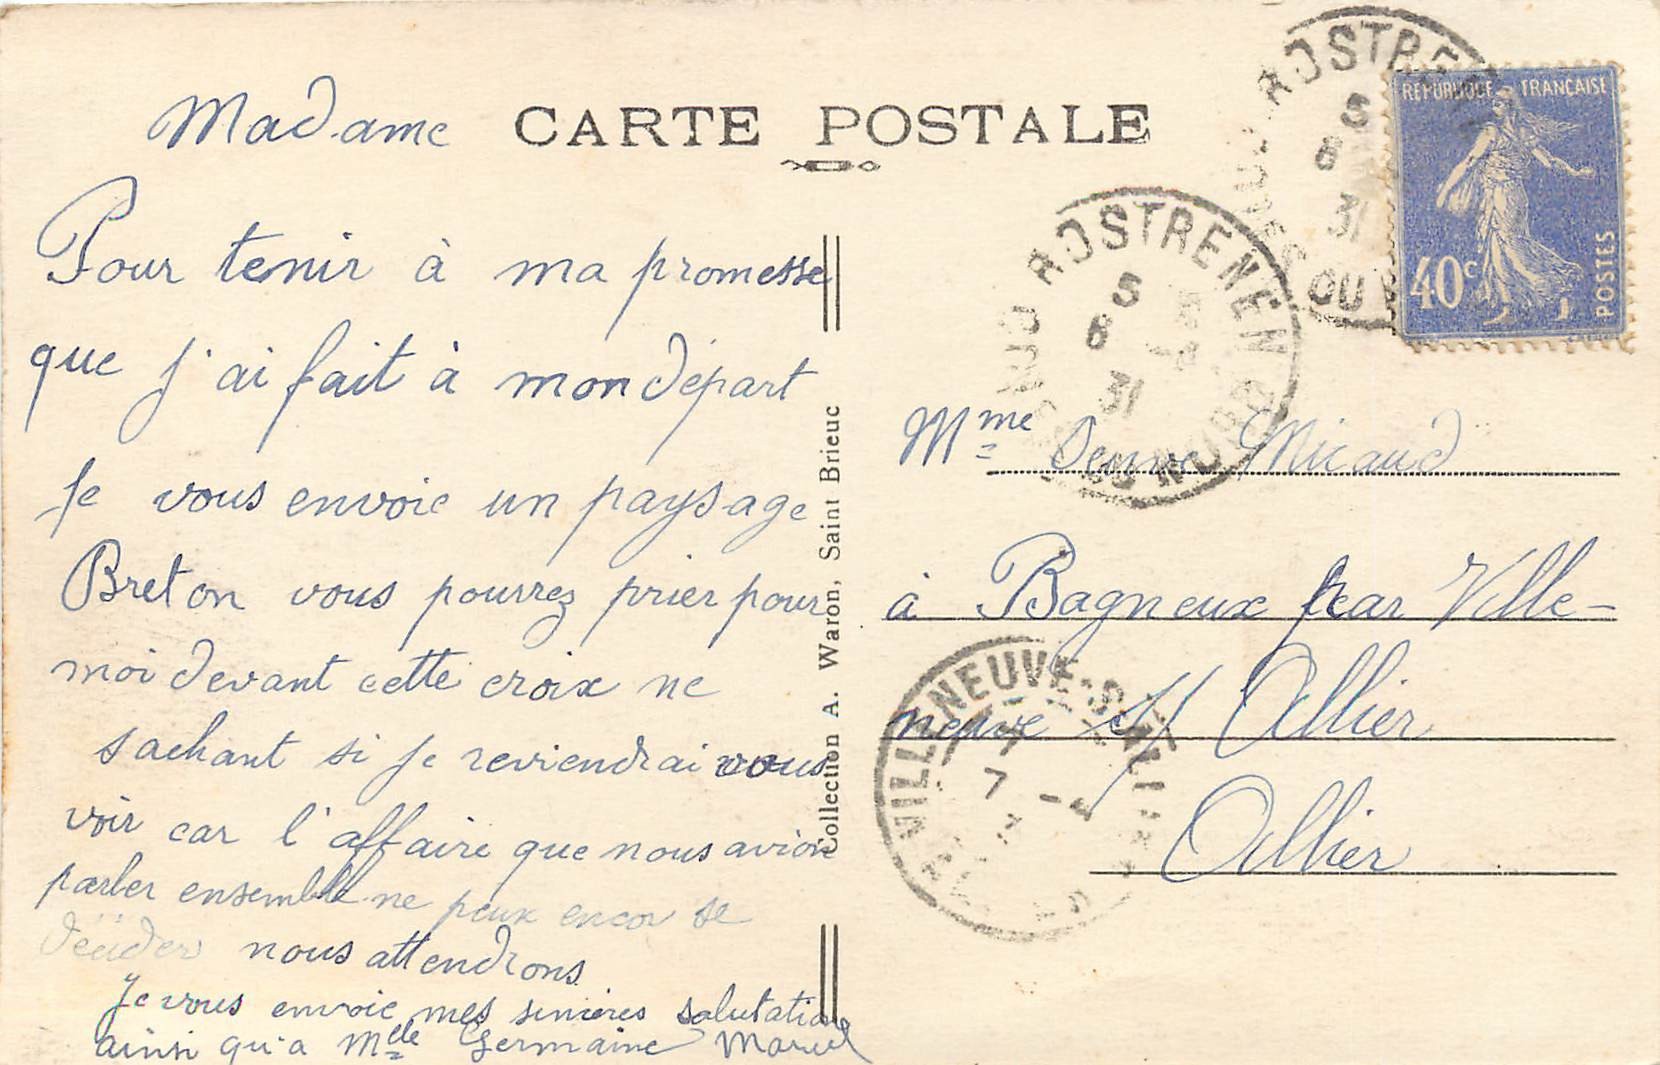 Madame
CARTE POSTALE
Pour tenir à ma promesse
que j'ai fait à mon départ
Je vous envoie un paysage
Breton vous pourrez prier pour
moi devant cette croix ne
sachant si je reviendrai vous
voir car l'affaire que nous avion
parler ensemble ne peux encor se
décider nous attendrons
Je vous envoie mes sinières salutations
ainsi qu'a Mlle Germaine Marcel
Collection A. Waron, Saint Brieuc
RÉPUBLIQUE FRANÇAISE
40c
POSTES
ROSTRENEN
5
8
31
DU
ROSTRENEN
5
6
31
DU NORD
Mme Micaud
à Bagneux par Ville-
neuve s/ Allier
Allier
VILLENEUVE-S-ALLIER
7